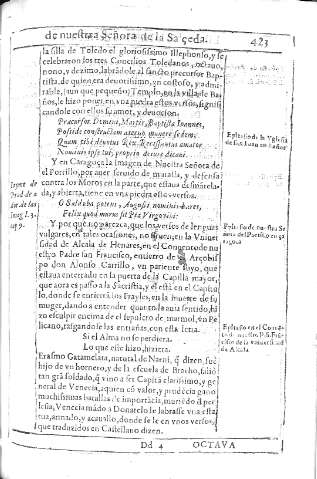 de nuestra Señora de la Salceda. 423
la silla de Toledo el gloriosissimo Illephonso, y se
celebraron los tres Concilios Toledanos, octauo,
nono, y dezimo, labròle al sancto precursor Bap-
tista, de quien era deuotissimo, vn costoso, y admi-
rable, (aun que pequeño) Templo, en la villa de Ba-
ños, e hizo poner en vna piedra estos versos, signifi
candole con su amor, y deuocion.
Præcursor Domini, Martir, Baptista Ioannes,
Posside constructam
sedem,
Quam tibi deuotus Rex, Recesuintus amator
Nominis ipse tui, proprio de iure dicaui.
Y en Caragoça la imagen de Nuestra Señora de
el Portillo, por auer seruido de muralla, y defensa
contra los Moros en la parte, que estaua
da, y abierta, tiene en vna piedra este verso.
O Salduba potens, Augusti nominis
Felix quod muro sit Pia Virgo tibi:
Y por que no parezca, que los versos de lenguas
vulgares, en tales ocasiones, no
en la Vniuer
sidad de Alcala de Henares, en el Conuento de nu
estro Padre san Francisco, entierro de el Arçobis
po don Alonso Carrillo, vn pariente suyo, que
estaua enterrado en la puerta de la Capilla mayor,
que aora es passo a la Sacristia, y el està en el Capitu
lo, donde se entierran los Frayles, en la muerte de su
muger, dando a entender quan
sentido, hi
zo esculpir encima de el sepulcro de marmol, vn Pe
licano, rasgandose las entrañas, con esta letra.
Si el Alma no se perdiera.
Lo que este hizo, hiziera.
Erasmo Gatamelata, natural de Narni, q̃ dizen, fue
hijo de vn hornero, y de la escuela de Bracho, salió
tan grã soldado, q̃ vino a ser Capitã clarissimo, y ge
neral de Venecia, a quien co valor, y prudẽcia gano
muchissimas batallas de importãcia, muerto el, por
essa, Venecia mãdò a Donatelo le labrasse vna esta
tua,
y acauallo, donde se leen vnos versos,
que traduzidos en Castellano dizen.
Dd 4 OCTAVA
Epitafio de la Yglesia
de San Iuan en Baños
Epitafio de nuestra Se
ñora del Portillo en Ça
ragoça
Epitafio en el Conuen
to de nuestro P. S. Frã
cisco de la vniuersidad
de Alcala